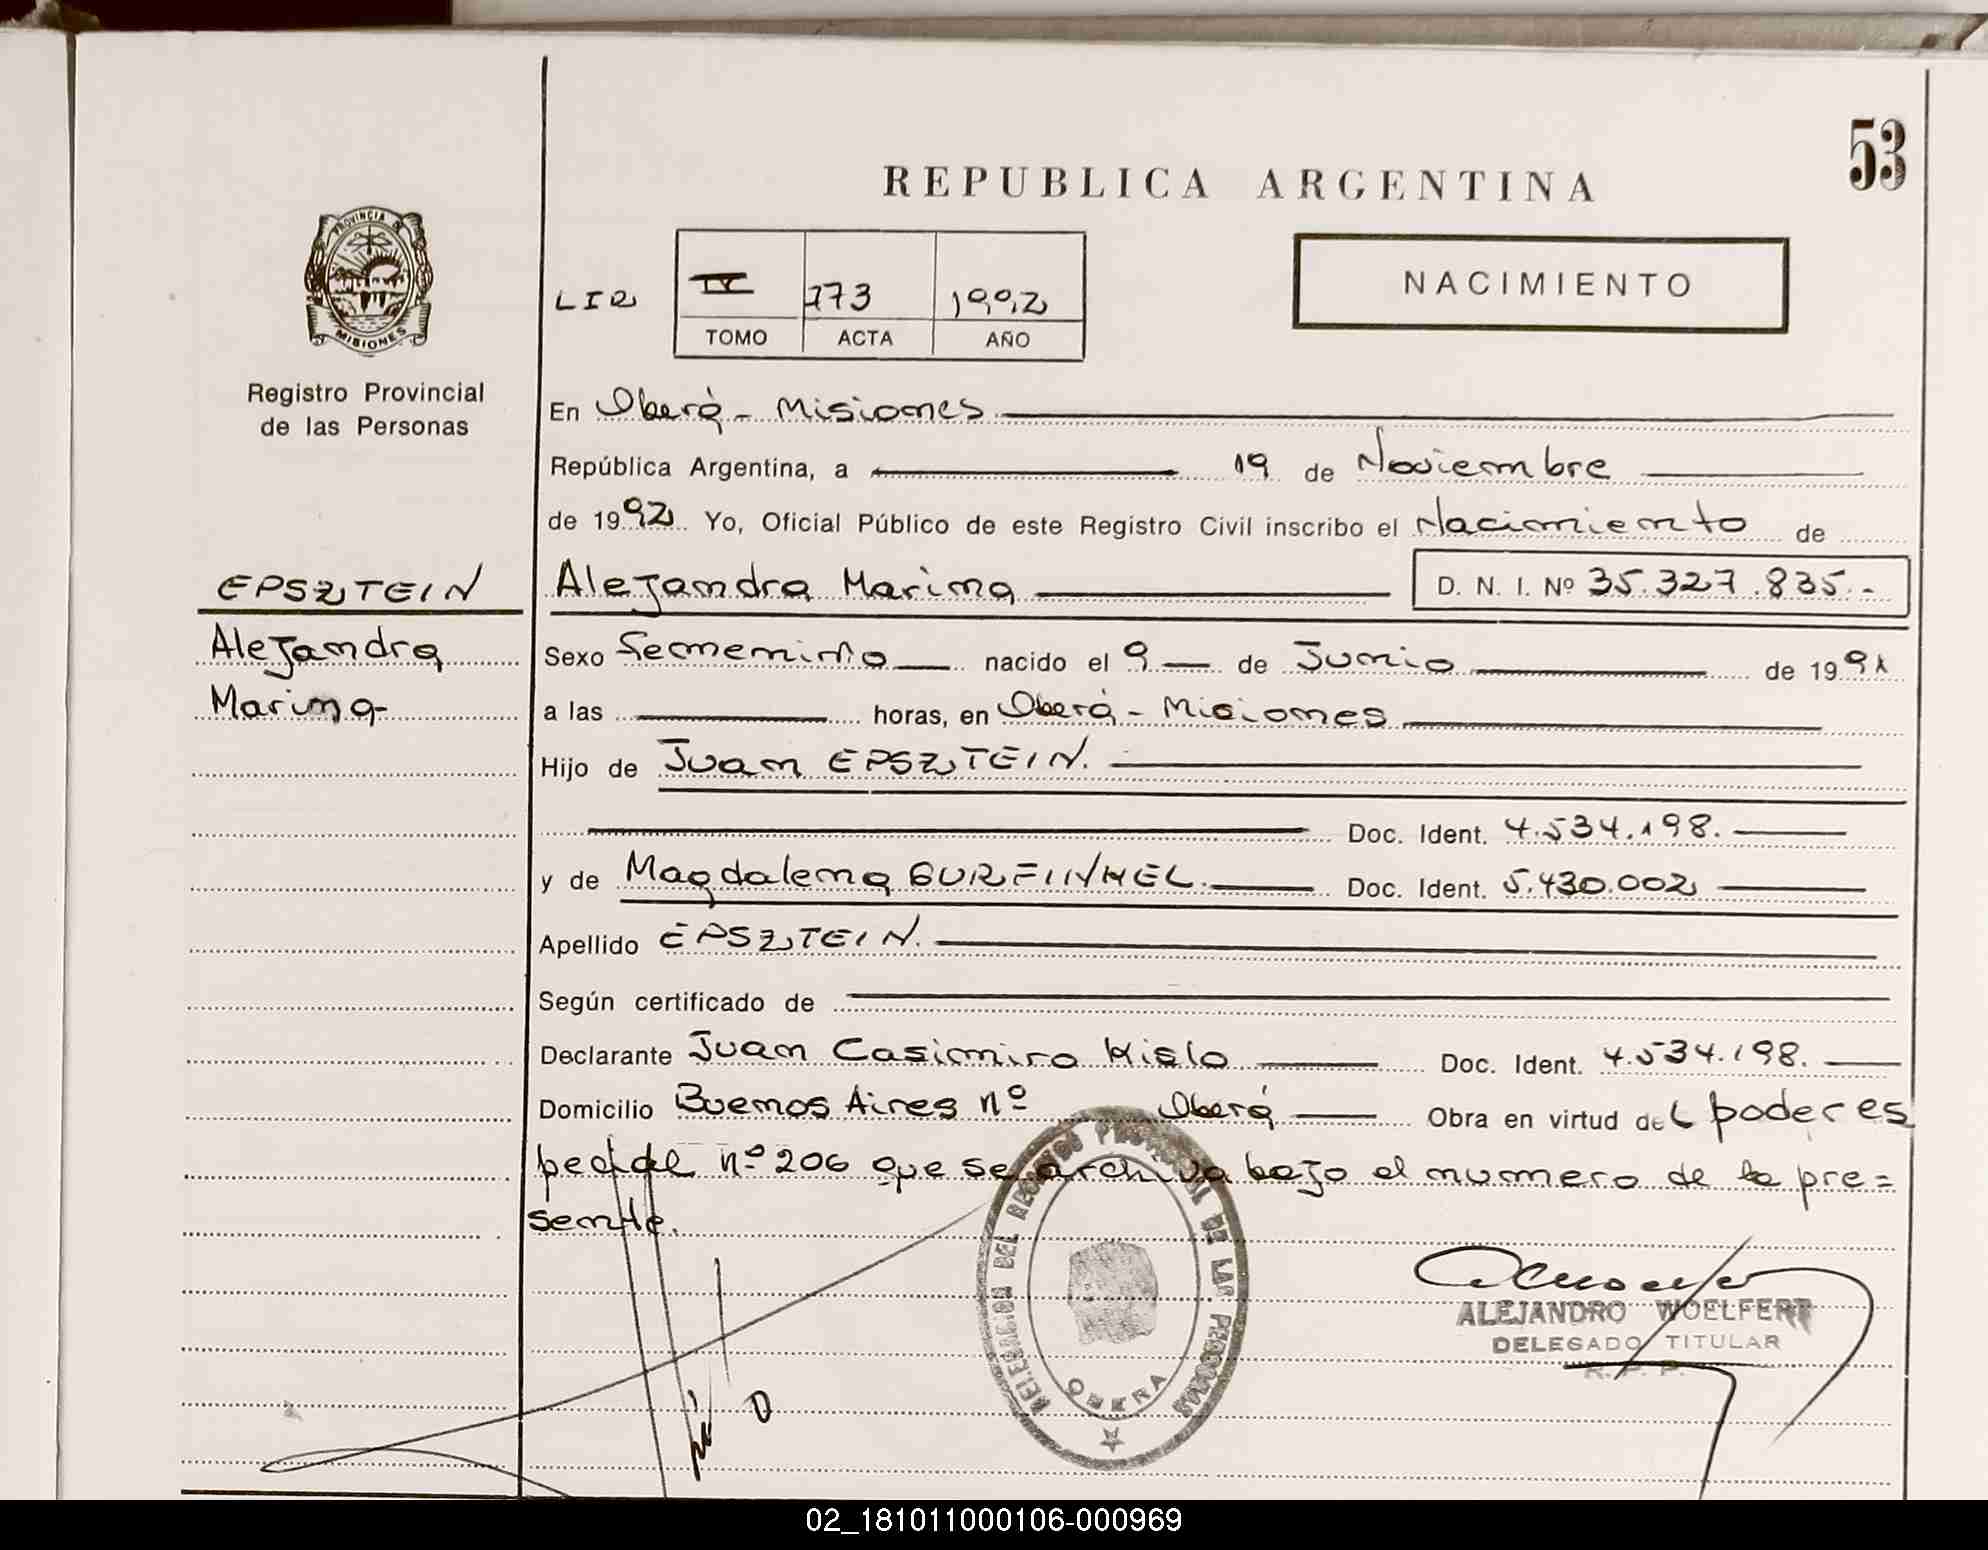 53
REPUBLICA ARGENTINA
PROVINCIA DE
MISIONES
Registro Provincial
de las Personas
NACIMIENTO
IV 773 1992
TOMO ACTA AÑO
En Oberá - Misiones
República Argentina, a 19 de Noviembre
de 1992 Yo, Oficial Público de este Registro Civil inscribo el Nacimiento de
EPSZTEIN
Alejandra
Marina-
Alejandra Marina D. N. I. Nº 35.327.835.-
Sexo Femenino nacido el 9 de Junio de 1991
a las horas, en Oberá - Misiones
Hijo de Juan EPSZTEIN.
Doc. Ident. 4.534.198.
y de Magdalena GURFINKEL. Doc. Ident. 5.430.002
Apellido EPSZTEIN.
Según certificado de
Declarante Juan Casimiro Kislo Doc. Ident. 4.534.198.
Domicilio Buenos Aires nº Oberá Obra en virtud del poder es
pecial nº 206 que se archiva bajo el numero de la pre=
sente.
DELEGACION DEL REGISTRO PROVINCIAL DE LAS PERSONAS
OBERA
ALEJANDRO WOELFERT
DELEGADO TITULAR
R. P. P.
02_181011000106-000969